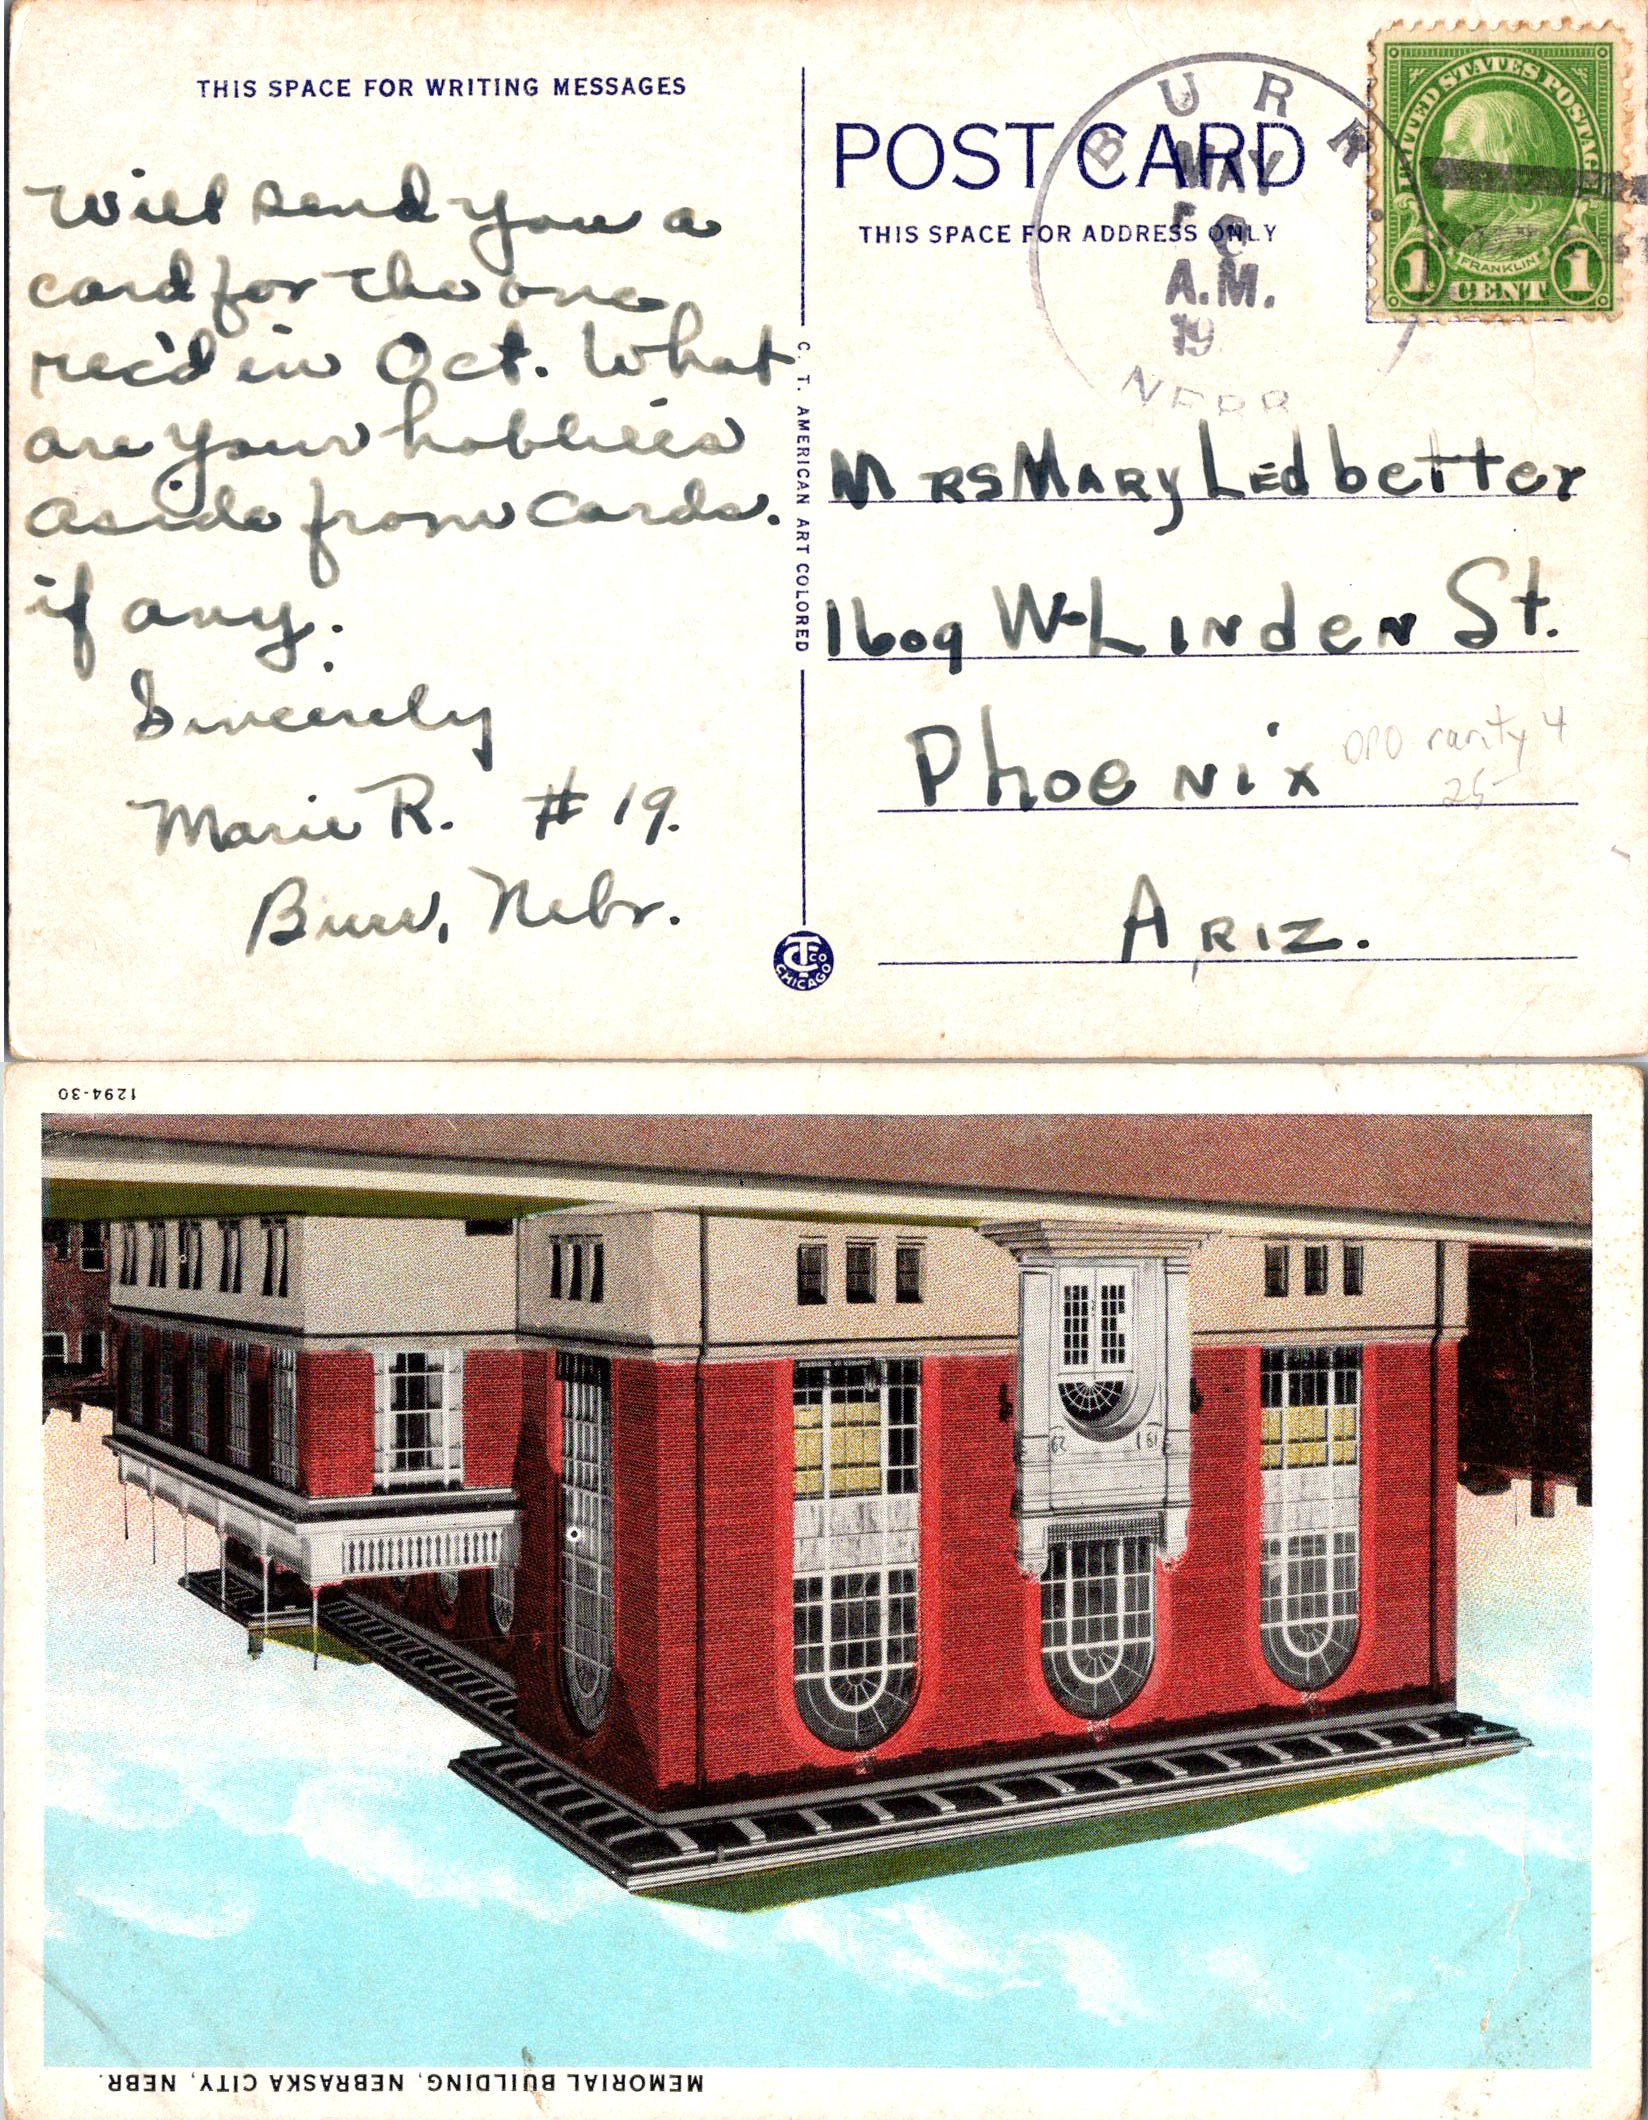 THIS SPACE FOR WRITING MESSAGES
Will send you a
card for the one
rec'd in Oct. What
are your hobbies
aside from cards.
if any.
Sincerely
Marie R. #19.
Burr, Nebr.
C. T. AMERICAN ART COLORED
CT CO
CHICAGO
POST CARD
THIS SPACE FOR ADDRESS ONLY
BURR
MAY
A.M.
19
NEBR
UNITED STATES POSTAGE
FRANKLIN
1 CENT 1
MRS MARY LEDbetter
1609 W-LINdeN St.
PhoeNix
ARIZ.
DPO rarity 4
25-
1294-30
MEMORIAL BUILDING, NEBRASKA CITY, NEBR.